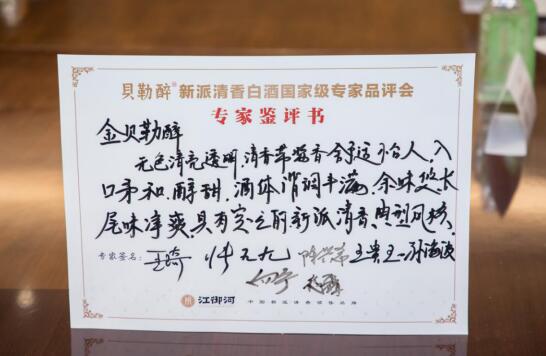 贝勒醉 新派清香白酒国家级专家品评会
专家鉴评书
金贝勒醉
无色清亮透明,清香带酱香舒适怡人,入
口柔和,醇甜,酒体谐调丰满,余味悠长
尾味净爽,具有突出的新派清香典型风格。
专家签名:王琦
江御河
中国新派清香领袖品牌